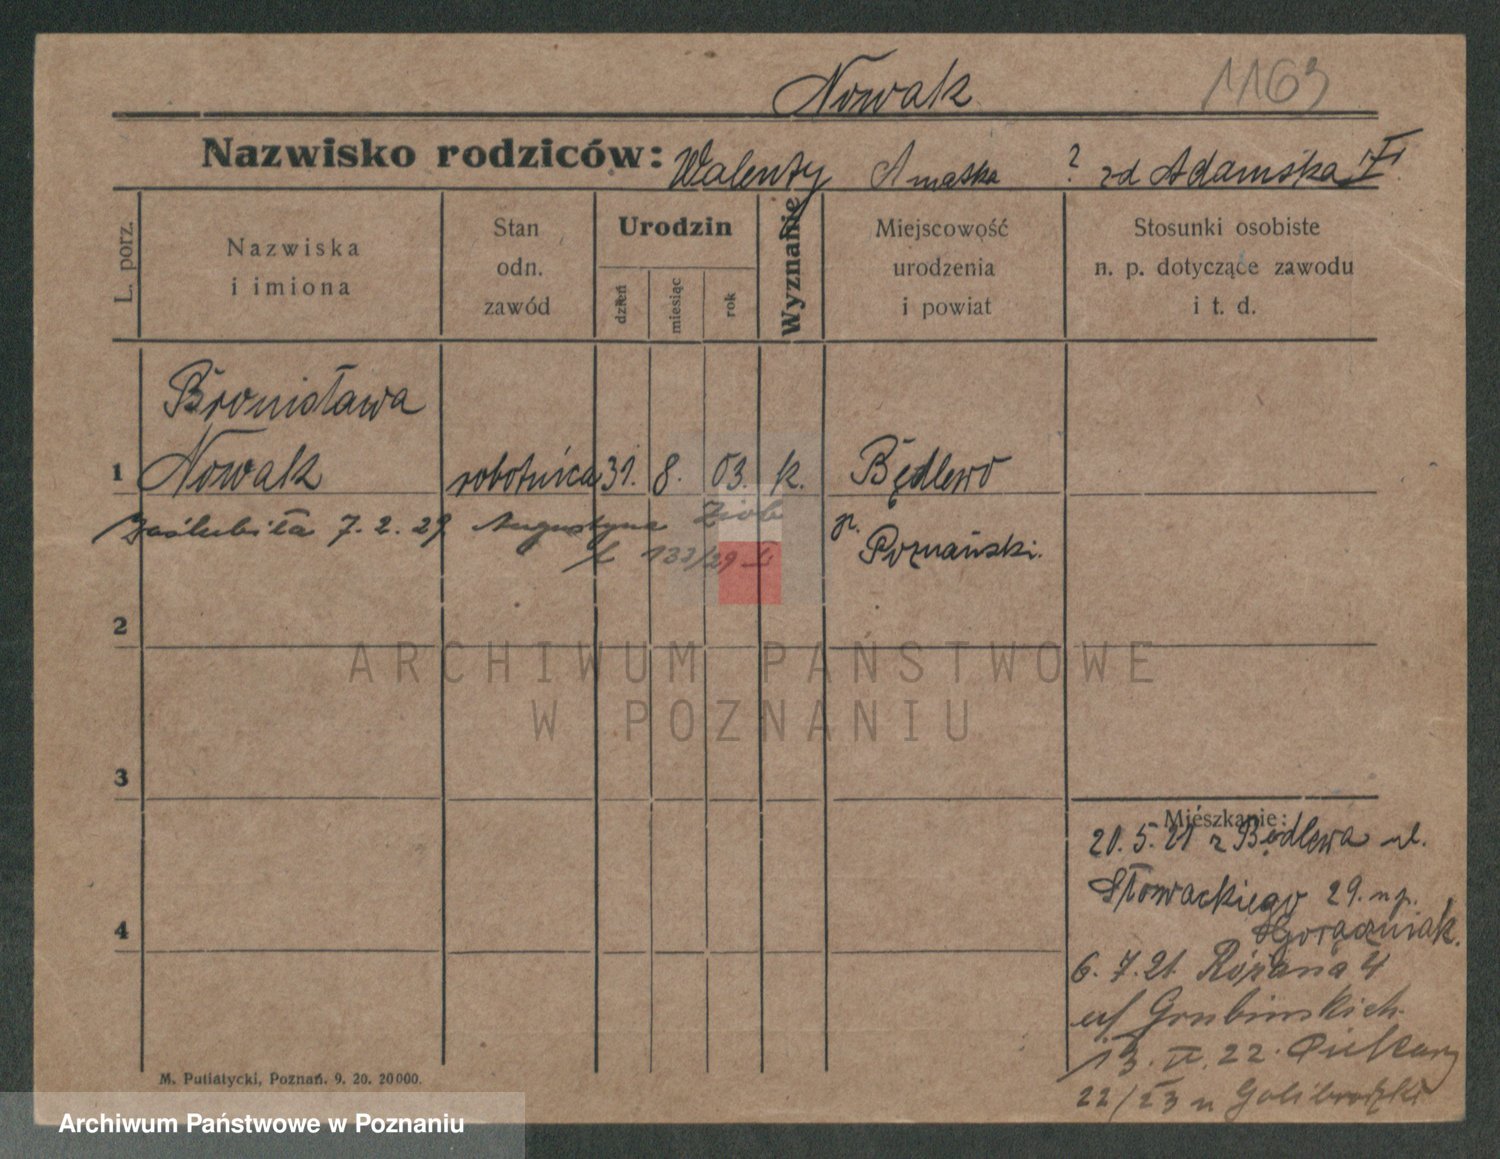 Nowak 1163
Nazwisko rodziców: Walenty Amaska ? zd Adamska
L. porz.
Nazwiska
i imiona
Stan
odn.
zawód
Urodzin
dzień
miesiąc
rok
Wyznanie
Miejscowość
urodzenia
i powiat
Stosunki osobiste
n. p. dotyczące zawodu
i t. d.
Bronisława
1 Nowak robotnica 31. 8. 03. k. Będlewo
Zaślubiła 7. 2. 29 Augustyna Zioło
p. Poznański.
132/29
2
3
4
Mieszkanie:
20. 5. 21 z Będlewa ul.
Słowackiego 29. n p.
Goraczniak.
6. 7. 21. Różana 4
Grubinskich
13. II. 22. Piekary
22/23 u
M. Putiatycki, Poznań. 9. 20. 20000.
ARCHIWUM PAŃSTWOWE
W POZNANIU
Archiwum Państwowe w Poznaniu